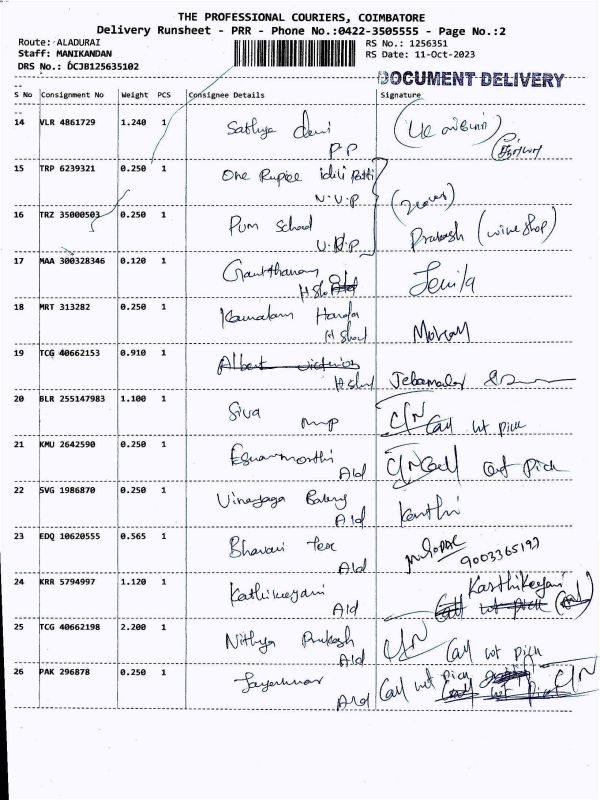 THE PROFESSIONAL COURIERS, COIMBATORE
Delivery Runsheet - PRR - Phone No.:0422-3505555 - Page No.:2
Route: ALADURAI
Staff: MANIKANDAN
DRS No.: DCJB125635102
RS No.: 1256351
RS Date: 11-Oct-2023
DOCUMENT DELIVERY
S No Consignment No Weight PCS Consignee Details Signature
14 VLR 4861729 1.240 1 Sathya devi
P P
15 TRP 6239321 0.250 1 One Rupice idili Patti
N.V.P
16 TRZ 35000503 0.250 1 Pum School
Prakash (wine shop)
17 MAA 300328346 0.120 1 Jenila
H Shol
18 MRT 313282 0.250 1 Kamalam
H Shol
19 TCG 40662153 0.910 1 Albert victories
H Shol Jebamalar
20 BLR 255147983 1.100 1 Siva C/N
Call not pick
21 KMU 2642590 0.250 1 Eswarmorthi C/N Call not Pick
Ald
22 SVG 1986870 0.250 1 Vinayaga Bakery Kanthi
Ald
23 EDQ 10620555 0.565 1 Bhavani Tex
Ald 9003365193
24 KRR 5794997 1.120 1 Kathikeyani Karthikeyani
Ald Call not pick
25 TCG 40662198 2.200 1 Nithya Prakash C/N Call not pick
Ald
26 PAK 296878 0.250 1 Jayakumar Call not pick C/N
Ald